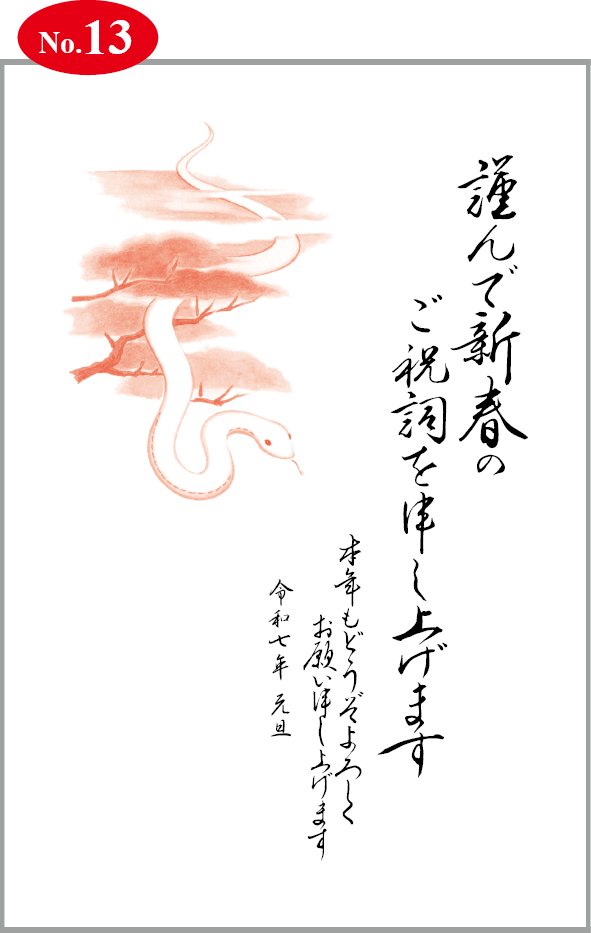 No.13
謹んで新春の
ご祝詞を申し上げます
本年もどうぞよろしく
お願い申し上げます
令和七年 元旦